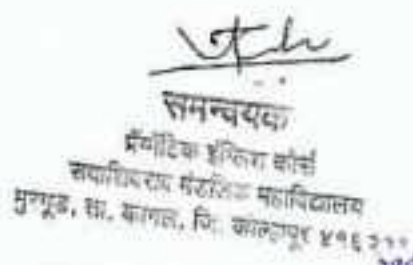 समन्वयक
प्रॅग्मॅटिक इंग्लिश कोर्स
सदाशिवराव मंडलिक महाविद्यालय
मुरगूड, ता. कागल, जि. कोल्हापूर ४१६२१९